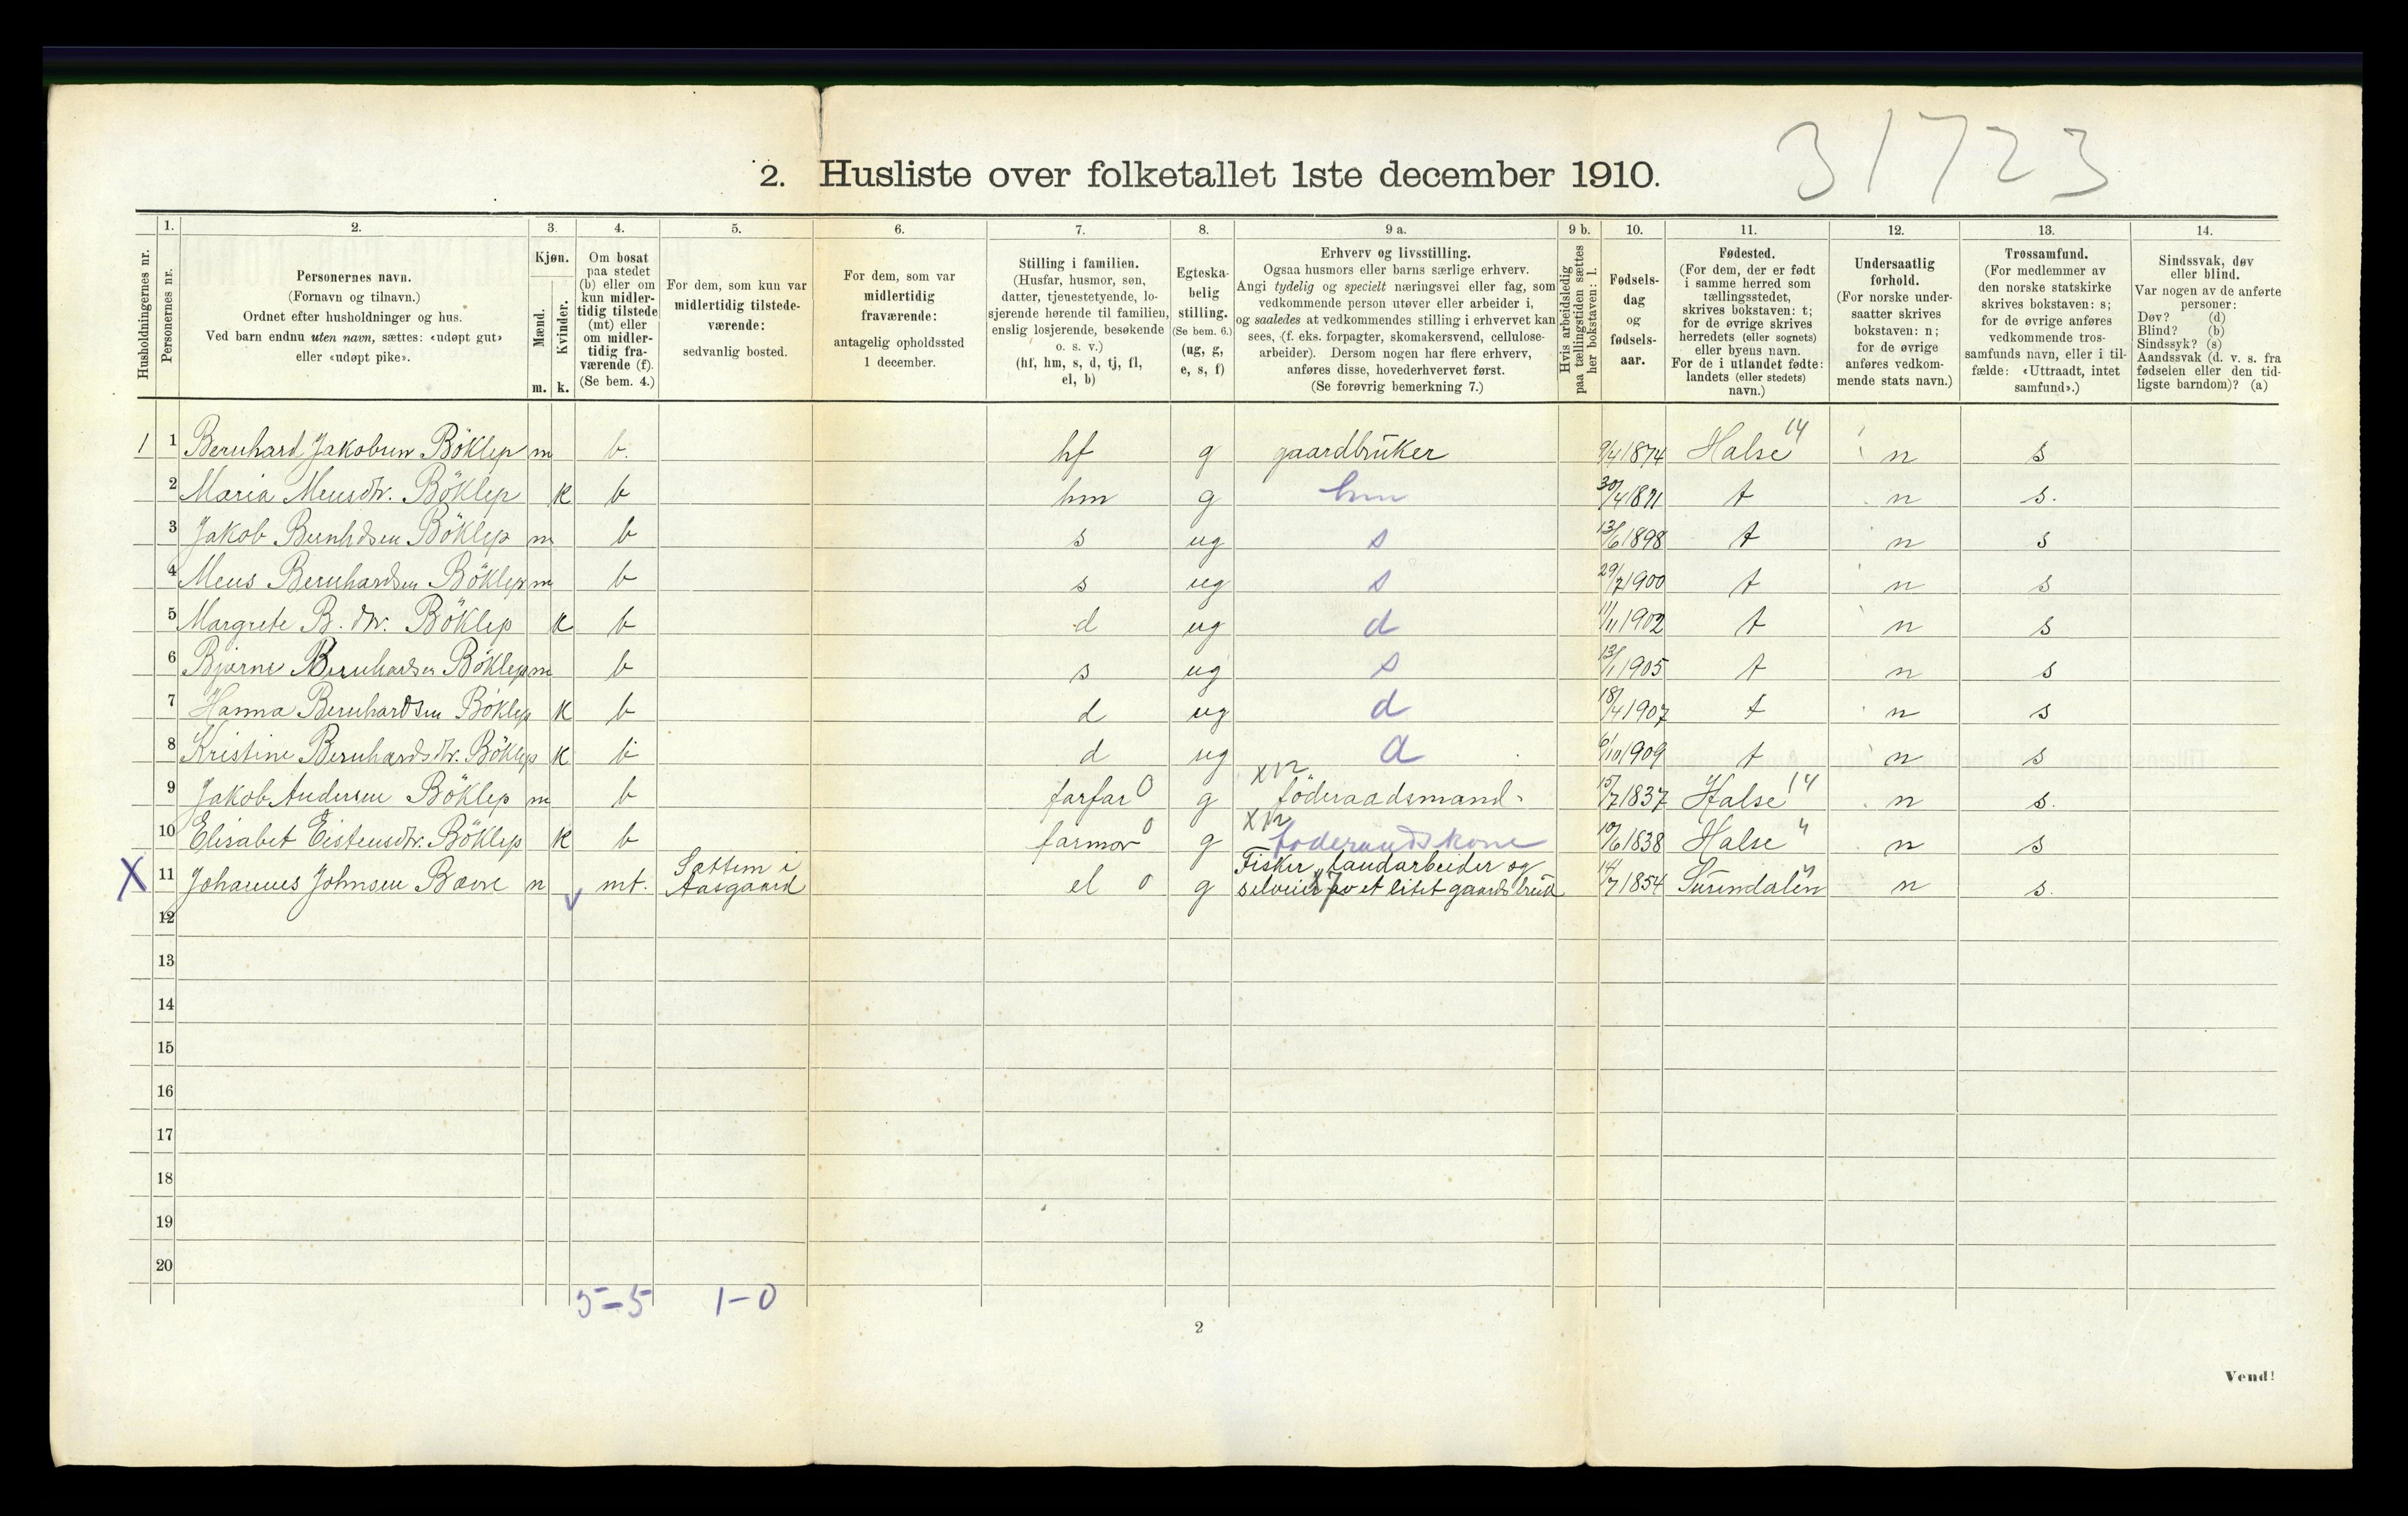 31723
2. Husliste over folketallet 1ste december 1910.
Husholdningernes nr.
1.
Personernes nr.
2.
Personernes navn.
(Fornavn og tilnavn.)
Ordnet efter husholdninger og hus.
Ved barn endnu uten navn, sættes: «udøpt gut»
eller «udøpt pike».
3.
Kjøn.
Mænd.
Kvinder.
m. k.
4.
Om bosat
paa stedet
(b) eller om
kun midler-
tidig tilstede
(mt) eller
om midler-
tidig fra-
værende (f).
(Se bem. 4.)
5.
For dem, som kun var
midlertidig tilstede-
værende:
sedvanlig bosted.
6.
For dem, som var
midlertidig
fraværende:
antagelig opholdssted
1 december.
7.
Stilling i familien.
(Husfar, husmor, søn,
datter, tjenestetyende, lo-
sjerende hørende til familien,
enslig losjerende, besøkende
o. s. v.)
(hf, hm, s, d, tj, fl,
el, b)
8.
Egteska-
belig
stilling.
(Se bem. 6.)
(ug, g,
e, s, f)
9 a.
Erhverv og livsstilling.
Ogsaa husmors eller barns særlige erhverv.
Angi tydelig og specielt næringsvei eller fag, som
vedkommende person utøver eller arbeider i,
og saaledes at vedkommendes stilling i erhvervet kan
sees, (f. eks. forpagter, skomakersvend, cellulose-
arbeider). Dersom nogen har flere erhverv,
anføres disse, hovederhvervet først.
(Se forøvrig bemerkning 7.)
9 b.
Hvis arbeidsledig
paa tællingstiden sættes
her bokstaven: l.
10.
Fødsels-
dag
og
fødsels-
aar.
11.
Fødested.
(For dem, der er født
i samme herred som
tællingsstedet,
skrives bokstaven: t;
for de øvrige skrives
herredets (eller sognets)
eller byens navn.
For de i utlandet fødte:
landets (eller stedets)
navn.)
12.
Undersaatlig
forhold.
(For norske under-
saatter skrives
bokstaven: n;
for de øvrige
anføres vedkom-
mende stats navn.)
13.
Trossamfund.
(For medlemmer av
den norske statskirke
skrives bokstaven: s;
for de øvrige anføres
vedkommende tros-
samfunds navn, eller i til-
fælde: «Uttraadt, intet
samfund».)
14.
Sindssvak, døv
eller blind.
Var nogen av de anførte
personer:
Døv? (d)
Blind? (b)
Sindssyk? (s)
Aandssvak (d. v. s. fra
fødselen eller den tid-
ligste barndom)? (a)
1 1 Bernhard Jakobsen Böklep m b. hf g gaardbruker 9/4 1874 Halse 14 n s
2 Maria Mensdtr. Böklep k b hm g hm 30/4 1871 t n s.
3 Jakob Bernhdsen Böklep m b s ug s 13/6 1898 t n s
4 Mens Bernhardsen Böklep m b s ug s 29/7 1900 t n s
5 Margrete B. dtr. Böklep k b d ug d 11/11 1902 t n s
6 Bjarne Bernhardsen Böklep m b s ug s 13/1 1905 t n s
7 Hanna Bernhardsen Böklep k b d ug d 18/4 1907 t n s
8 Kristine Bernhardsdtr. Böklep k b d ug d 6/10 1909 t n s
9 Jakob Andersen Böklep m b farfar 0 g föderaadsmand 15/7 1837 Halse 14 n s.
10 Elisabet Eistensdtr. Böklep k b farmor 0 g foderaadskone 10/6 1838 Halse " n s
X 11 Johannes Johnsen Bævre m mt. Sættem i Aasgaard el 0 g Fisker, landarbeider og
selveier av et litet gaardsbruk 14/7 1854 Surendalen n s.
12
13
14
15
16
17
18
19
20
5-5 1-0
2
Vend!